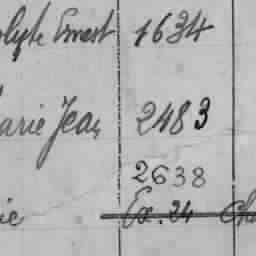 olyte Ernest 1634
arie Jean 2483
2638
ie Ex. 24 Cha